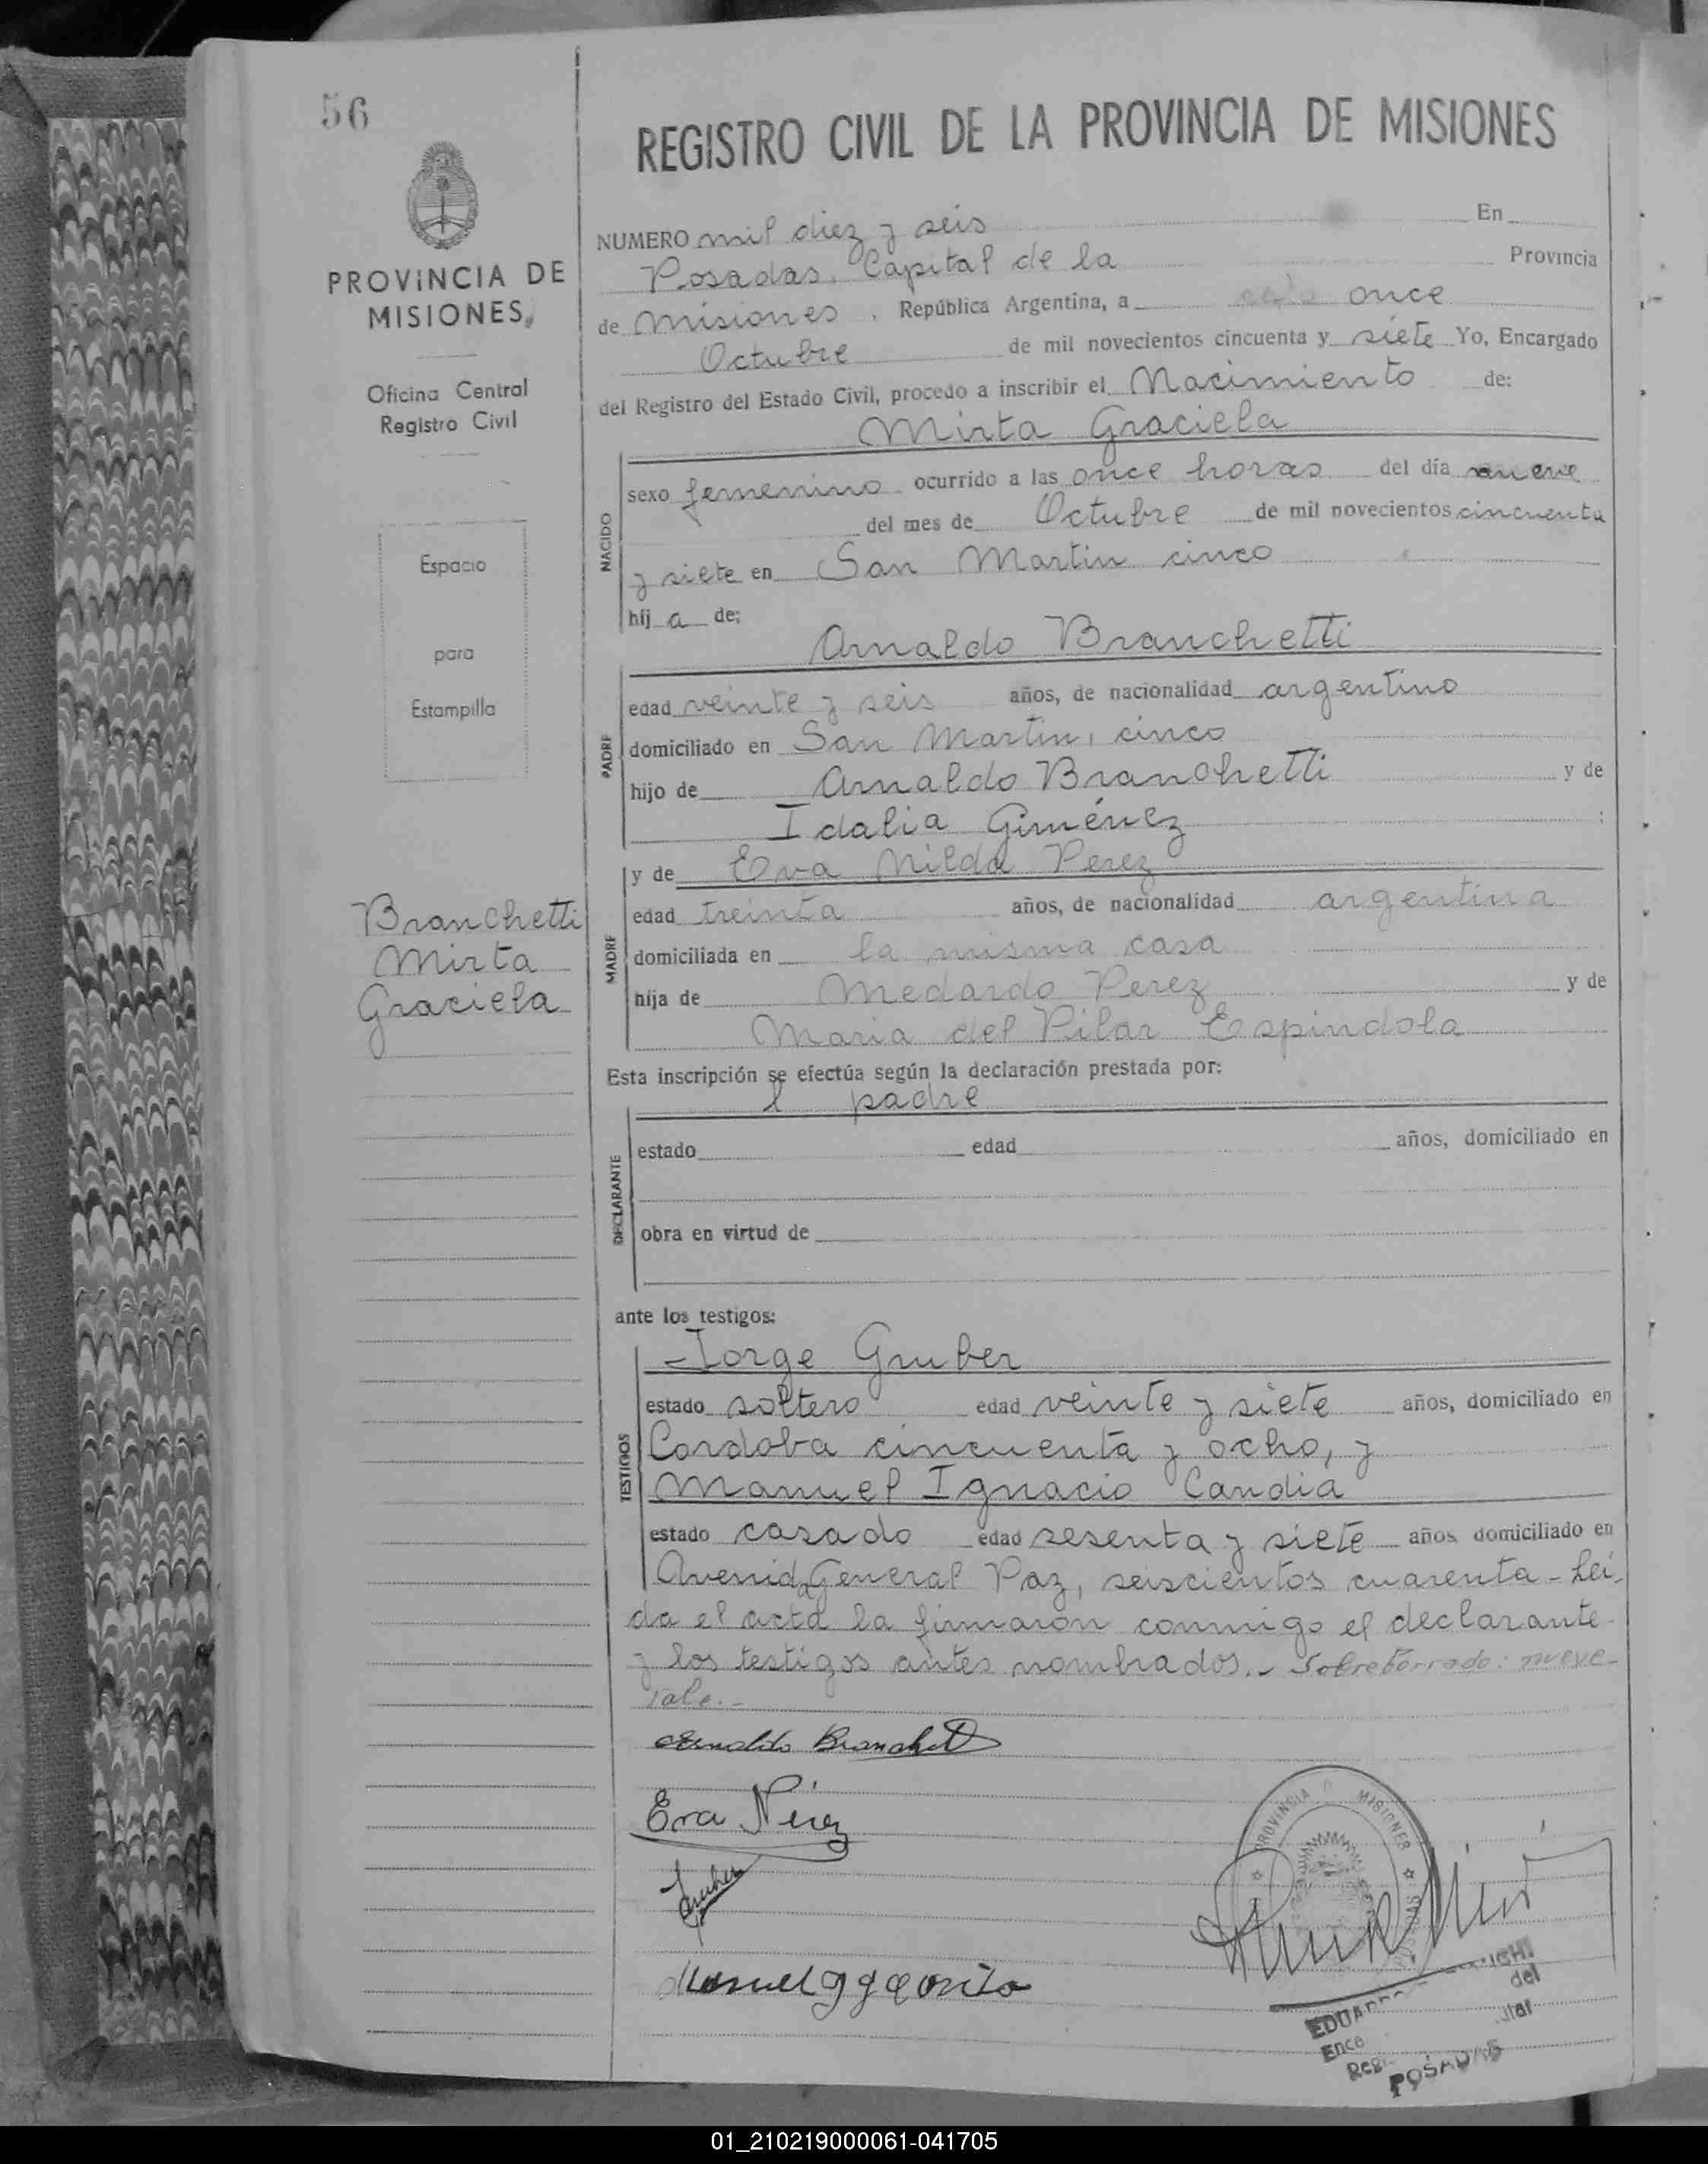 56
PROVINCIA DE
MISIONES
Oficina Central
Registro Civil
Espacio
para
Estampilla
Branchetti
Mirta
Graciela
REGISTRO CIVIL DE LA PROVINCIA DE MISIONES
NUMERO mil diez y seis En
Posadas, Capital de la Provincia
de Misiones, República Argentina, a once
Octubre de mil novecientos cincuenta y siete Yo, Encargado
del Registro del Estado Civil, procedo a inscribir el Nacimiento de:
Mirta Graciela
NACIDO
sexo femenino ocurrido a las once horas del día nueve
del mes de Octubre de mil novecientos cincuenta
y siete en San Martin cinco
hij a de:
Arnaldo Branchetti
PADRE
edad veinte y seis años, de nacionalidad argentino
domiciliado en San Martin, cinco
hijo de Arnaldo Branchetti y de
Idalia Giménez ;
y de Eva Nilda Perez
MADRE
edad treinta años, de nacionalidad argentina
domiciliada en la misma casa
hija de Medardo Perez y de
Maria del Pilar Espindola
Esta inscripción se efectúa según la declaración prestada por:
l padre
DECLARANTE
estado edad años, domiciliado en
obra en virtud de
ante los testigos:
Jorge Gruber
TESTIGOS
estado soltero edad veinte y siete años, domiciliado en
Cordoba cincuenta y ocho, y
Manuel Ignacio Candia
estado casado edad sesenta y siete años domiciliado en
Avenida General Paz, seiscientos cuarenta - Leí-
da el acta la firmaron conmigo el declarante
y los testigos antes nombrados.- Sobreborrado: nueve-
Vale.-
Arnaldo Branchetti
Eva Pérez
Gruber
Manuel
PROVINCIA MISIONES
POSADAS
del
POSADAS
01_210219000061-041705